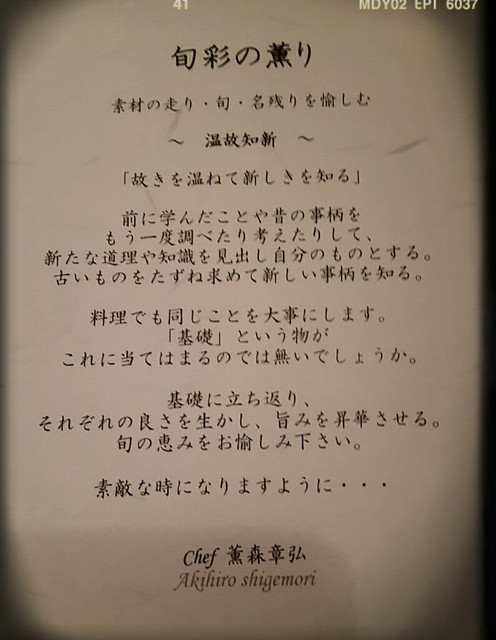 41 MDY02 EPT 6037
旬彩の薫り
素材の走り・旬・名残りを愉しむ
～ 温故知新 ～
「故きを温ねて新しきを知る」
前に学んだことや昔の事柄を
もう一度調べたり考えたりして、
新たな道理や知識を見出し自分のものとする。
古いものをたずね求めて新しい事柄を知る。
料理でも同じことを大事にします。
「基礎」という物が
これに当てはまるのでは無いでしょうか。
基礎に立ち返り、
それぞれの良さを生かし、旨みを昇華させる。
旬の恵みをお愉しみ下さい。
素敵な時になりますように・・・
Chef 薫森章弘
Akihiro shigemori